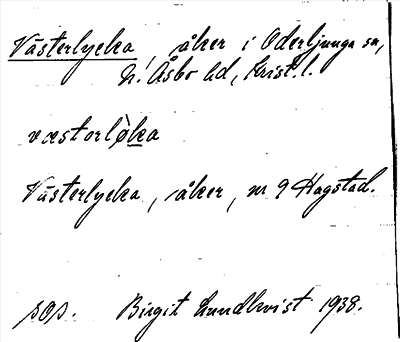 Västerlycka, åker i Oderljunga sn,
N. Åsbo hd, Krist. l.
västorlø̀ka
Västerlycka, åker, nr 9 Hagstad.
sos. Birgit Lundkvist 1938.